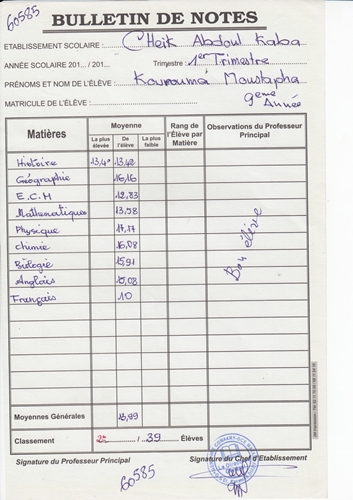 60585
BULLETIN DE NOTES
ETABLISSEMENT SCOLAIRE : Cheik Abdoul Kaba
ANNÉE SCOLAIRE 201... / 201... Trimestre : 1er Trimestre
PRÉNOMS ET NOM DE L'ÉLÈVE : Kourouma Moustapha
MATRICULE DE L'ÉLÈVE : 9eme Année
Matières Moyenne Rang de l'Élève par Matière Observations du Professeur Principal
La plus élevée De l'élève La plus faible
Histoire 13,40 13,42
Géographie 16,16
E.C.M 12,83
Mathématiques 13,58
Physique 17,17
Chimie 16,08
Biologie 15,91
Anglais 10,08
Français 10
Bon élève
Moyennes Générales 13,99
Classement / 39 Élèves
Signature du Professeur Principal Signature du Chef d'Etablissement
60585